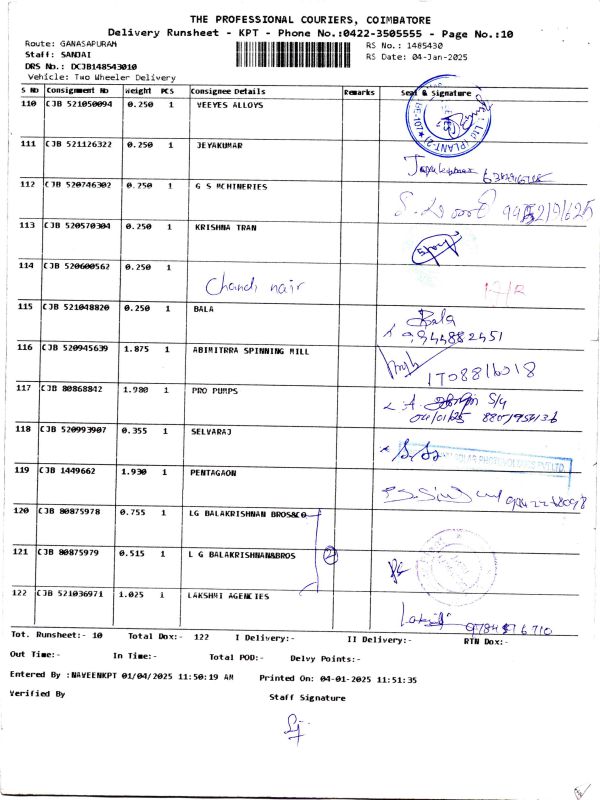 THE PROFESSIONAL COURIERS, COIMBATORE
Delivery Runsheet - KPT - Phone No.:0422-3505555 - Page No.:10
Route: GANASAPURAM RS No.: 1485430
Staff: SANJAI RS Date: 04-Jan-2025
DRS No.: DCJB148543010
Vehicle: Two Wheeler Delivery
S No Consignment No Weight PCS Consignee Details Remarks Seal & Signature
110 CJB 521050094 0.250 1 VEEYES ALLOYS
111 CJB 521126322 0.250 1 JEYAKUMAR
112 CJB 520746302 0.250 1 G S MCHINERIES
113 CJB 520570304 0.250 1 KRISHNA TRAN
114 CJB 520600562 0.250 1
Chandi nair
115 CJB 521048820 0.250 1 BALA
Bala
9944882451
116 CJB 520945639 1.875 1 ABIMITRRA SPINNING MILL
117 CJB 80868842 1.980 1 PRO PUMPS
04/01/25
118 CJB 520993907 0.355 1 SELVARAJ
119 CJB 1449662 1.930 1 PENTAGAON
120 CJB 80875978 0.755 1 LG BALAKRISHNAN BROS&CO
121 CJB 80875979 0.515 1 L G BALAKRISHNAN&BROS 2
122 CJB 521036971 1.025 1 LAKSHMI AGENCIES
Tot. Runsheet:- 10 Total Dox:- 122 I Delivery:- II Delivery:- RTN Dox:-
Out Time:- In Time:- Total POD:- Delvy Points:-
Entered By :NAVEENKPT 01/04/2025 11:50:19 AM Printed On: 04-01-2025 11:51:35
Verified By Staff Signature